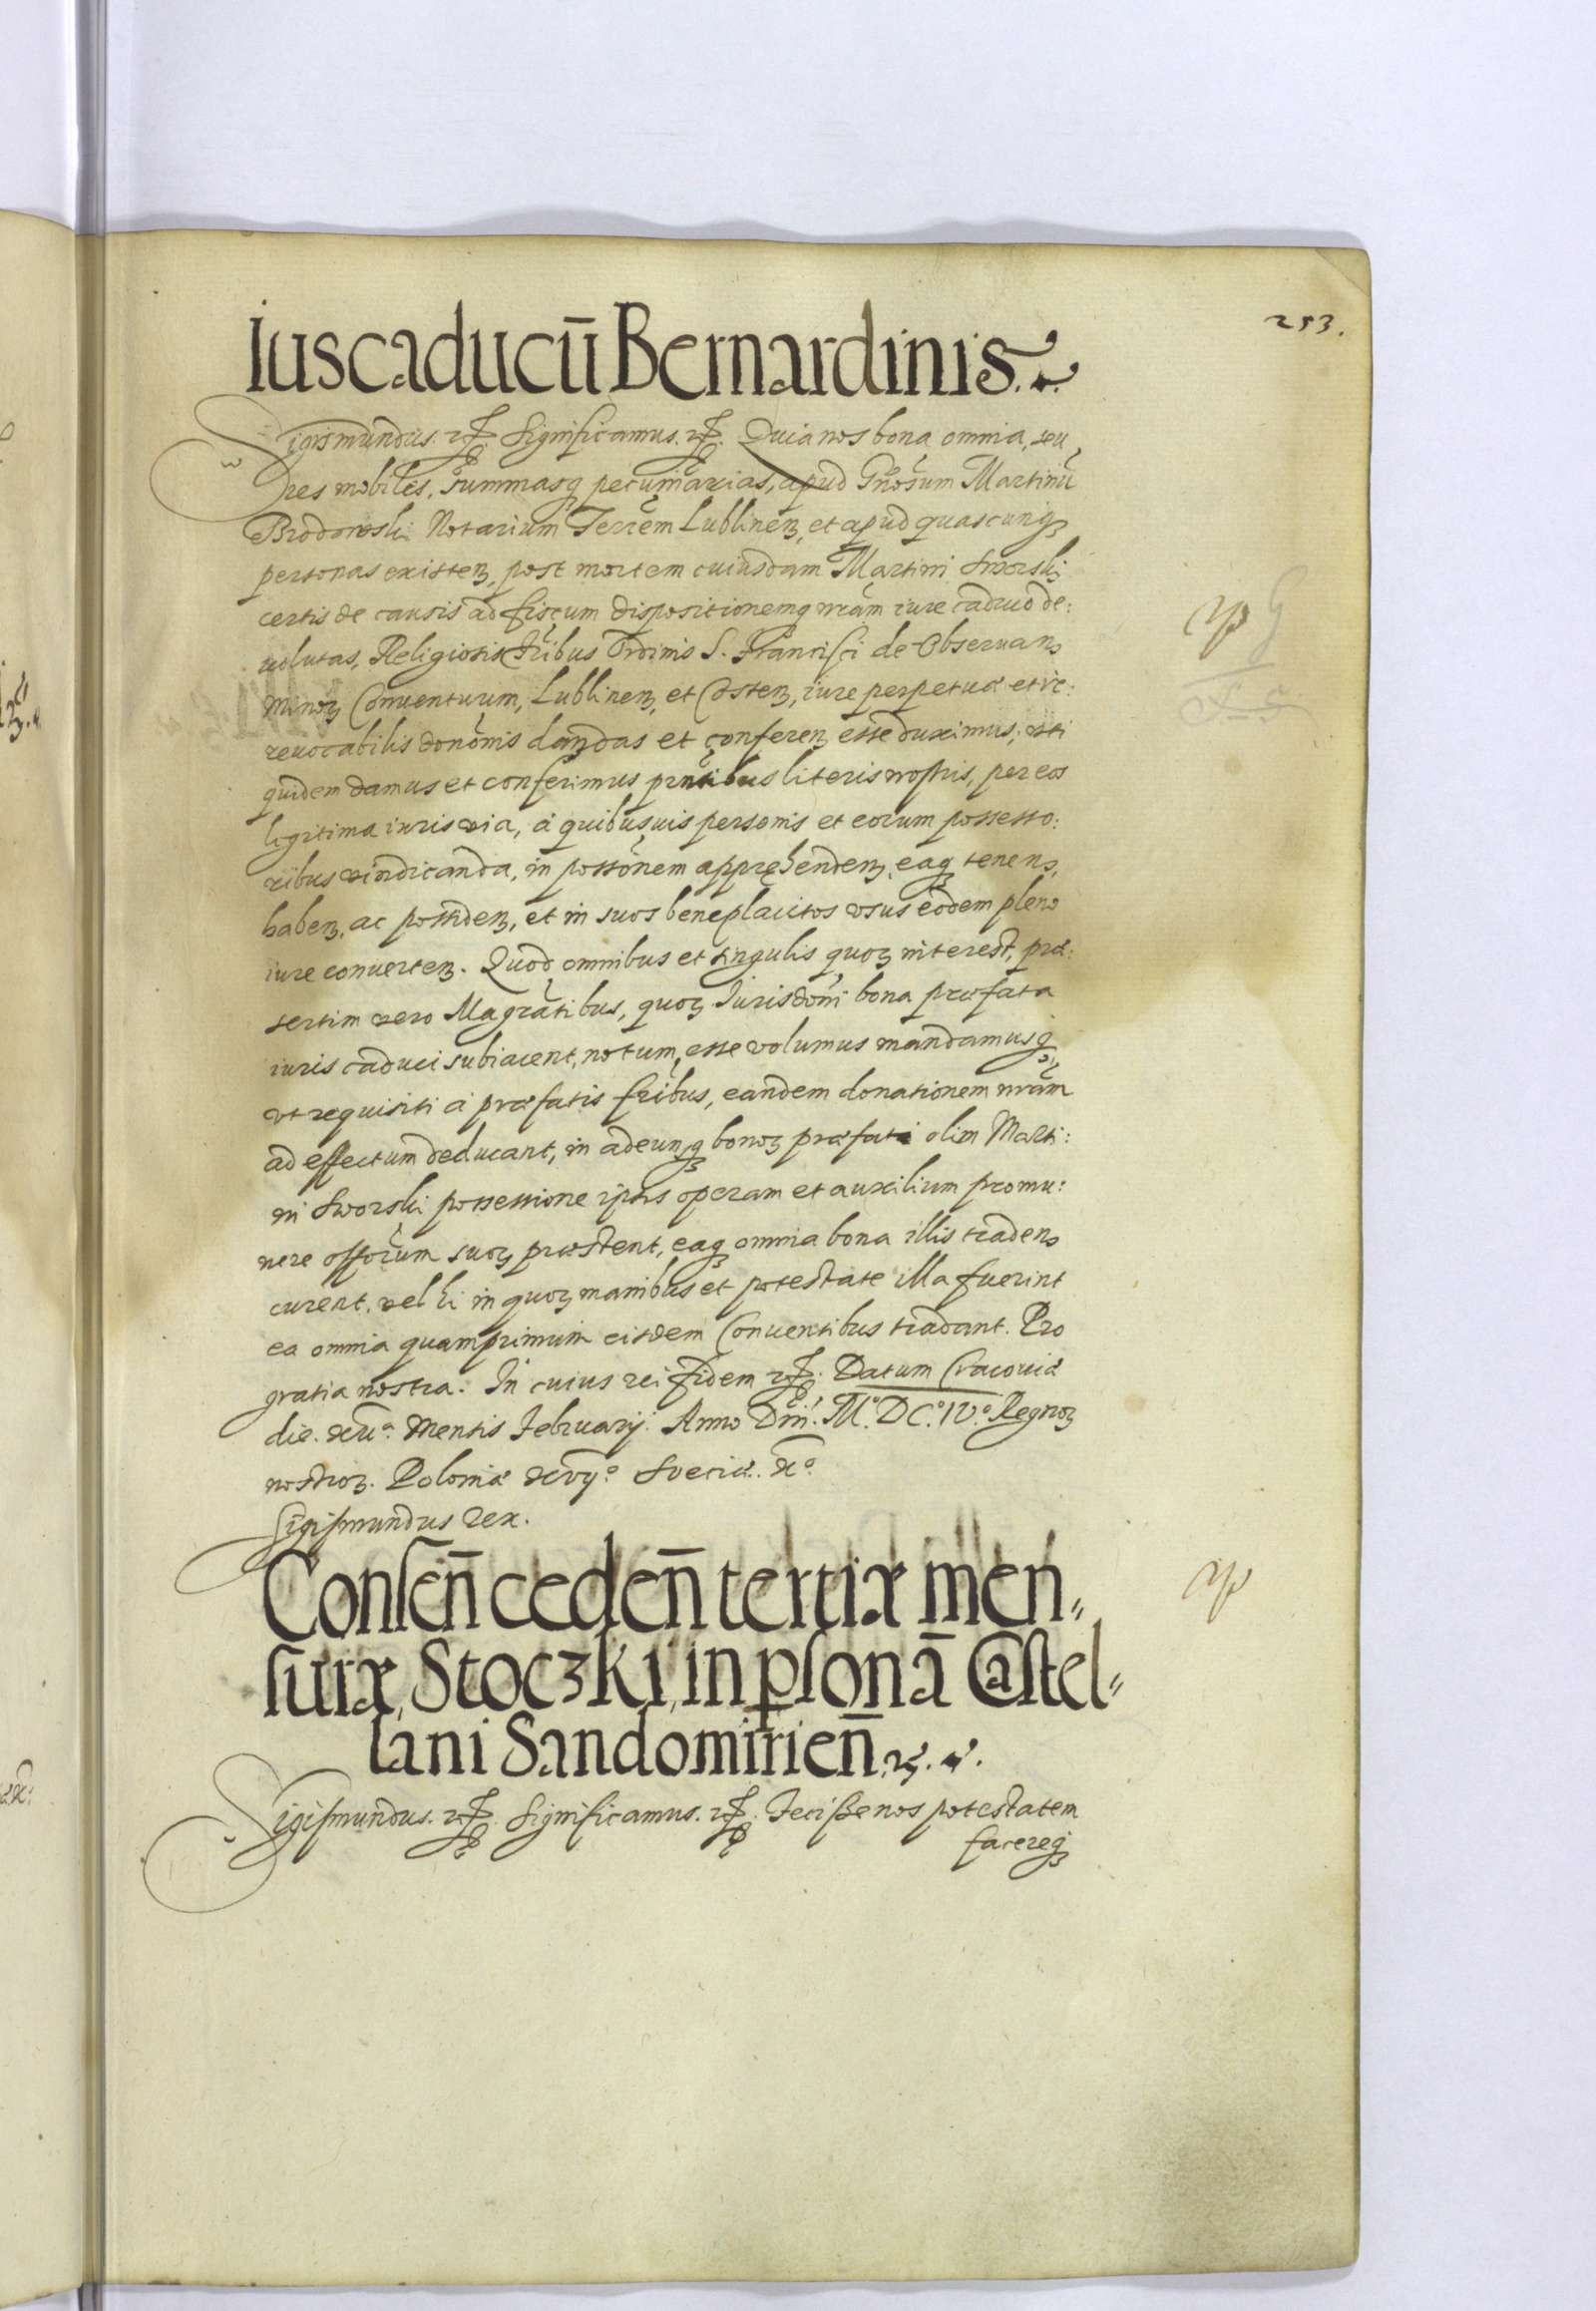 253.
Ius caducū Bernardinis.
Sigismundus. etc. Significamus. etc. Quia nos bona omnia, seu
res mobiles, summasq́ pecuniarias, apud Gnōsum Martinū
Brodowski Notarium Terrem Lublineꝫ, et apud quascunqꝫ
personas existeꝫ, post mortem cuiusdam Martini Sworski
certis de causis ad fiscum dispositionemq́ nrām iure caduco de:
uolutas, Religiosis Frībus Ordinis S. Francisci de Obseruanꝫ
Minoꝝ Conuentuum, Lublineꝫ, et Costeꝫ, iure perpetuæ et ir:
reuocabilis donōnis dandas et confereꝫ esse duximus; vti
quidem damus et conferimus prntibus literis nostris, per eos
legitima iuris via, à quibusuis personis et eorum possesso:
ribus vindicanda, in possōnem apprehendeꝫ, eaqꝫ tenenꝫ,
habeꝫ, ac possideꝫ, et in suos beneplacitos vsus eodem pleno
iure conuerteꝫ. Quod omnibus et singulis quoꝝ interest, præ:
sertim vero Magrātibus, quoꝝ Iurisdōni bona præfata
iuris caduci subiacent, notum esse volumus mandamusq́,
vt requisiti à præfatis frībus, eandem donationem nrām
ad effectum deducant, in adeunqꝫ bonoꝝ præfati olim Marti:
ni Sworski possessione ipsis operam et auxilium promu:
nere offōrum suoꝝ præstent, eaqꝫ omnia bona illis tradenꝫ
curent, vel hi in quoꝝ manibus et potestate illa fuerint
ea omnia quamprimum eisdem Conuentibus tradant. Pro
gratia nostra. In cuius rei fidem etc. Datum Cracouiæ
die. Mensis Februarij. Anno Dnī. M.º DC.º IV.º Regnoꝝ
nostroꝝ. Poloniæ xvij.º Sueciæ. xº
Sigismundus Rex.
Consen̄ ceden̄ tertiæ men„
suræ, Stoczki, in psonā Castel„
lani Sandomirien̄.
Sigismundus. etc. Significamus. etc. Fecisse nos potestatem
facereqꝫ